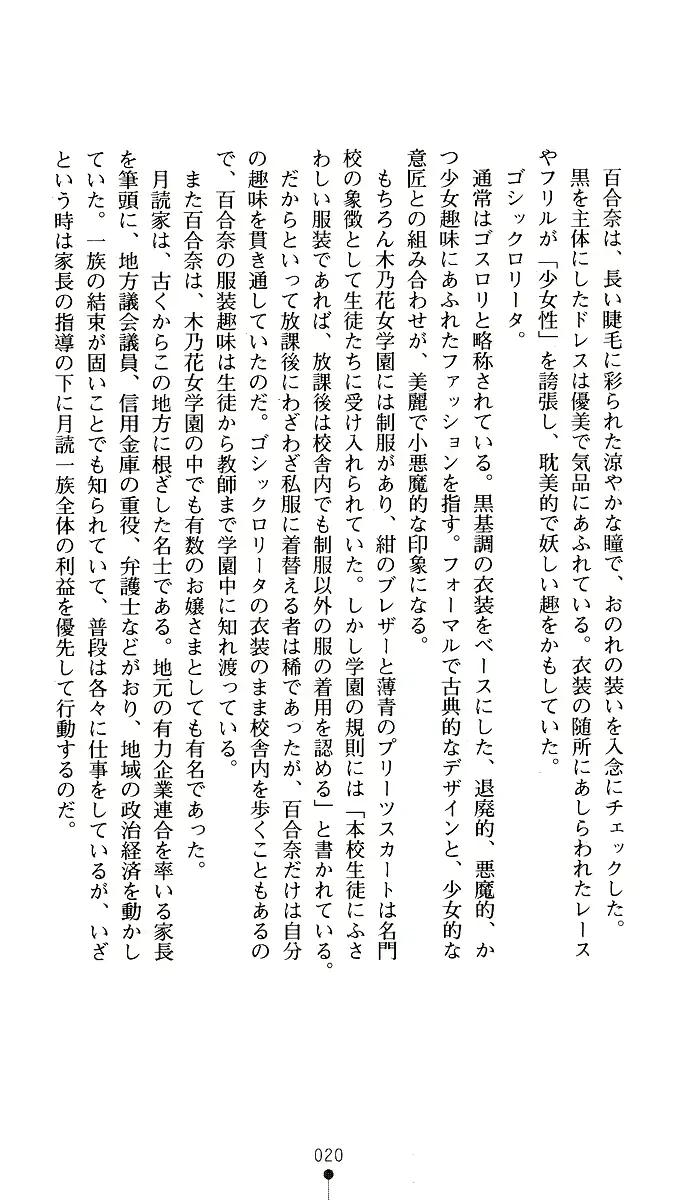 百合奈は、長い睫毛に彩られた涼やかな瞳で、おのれの装いを入念にチェックした。
黒を主体にしたドレスは優美で気品にあふれている。衣装の随所にあしらわれたレース
やフリルが「少女性」を誇張し、耽美的で妖しい趣をかもしていた。
ゴシックロリータ。
通常はゴスロリと略称されている。黒基調の衣装をベースにした、退廃的、悪魔的、か
つ少女趣味にあふれたファッションを指す。フォーマルで古典的なデザインと、少女的な
意匠との組み合わせが、美麗で小悪魔的な印象になる。
もちろん木乃花女学園には制服があり、紺のブレザーと薄青のプリーツスカートは名門
校の象徴として生徒たちに受け入れられていた。しかし学園の規則には「本校生徒にふさ
わしい服装であれば、放課後は校舎内でも制服以外の服の着用を認める」と書かれている。
だからといって放課後にわざわざ私服に着替える者は稀であったが、百合奈だけは自分
の趣味を貫き通していたのだ。ゴシックロリータの衣装のまま校舎内を歩くこともあるの
で、百合奈の服装趣味は生徒から教師まで学園中に知れ渡っている。
また百合奈は、木乃花女学園の中でも有数のお嬢さまとしても有名であった。
月読家は、古くからこの地方に根ざした名士である。地元の有力企業連合を率いる家長
を筆頭に、地方議会議員、信用金庫の重役、弁護士などがおり、地域の政治経済を動かし
ていた。一族の結束が固いことでも知られていて、普段は各々に仕事をしているが、いざ
という時は家長の指導の下に月読一族全体の利益を優先して行動するのだ。
020